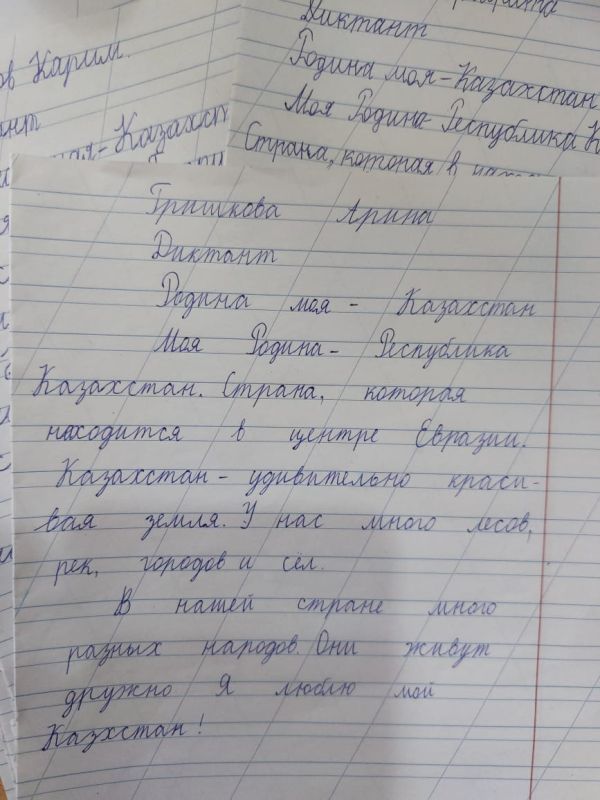 Диктант
Родина моя - Казахстан
Моя Родина - Республика
Страна, которая в
Карим.
Гришкова Арина
Диктант
Родина моя - Казахстан
Моя Родина - Республика
Казахстан. Страна, которая
находится в центре Евразии.
Казахстан - удивительно краси-
вая земля. У нас много лесов,
рек, городов и сёл.
В нашей стране много
разных народов. Они живут
дружно Я люблю мой
Казхстан!